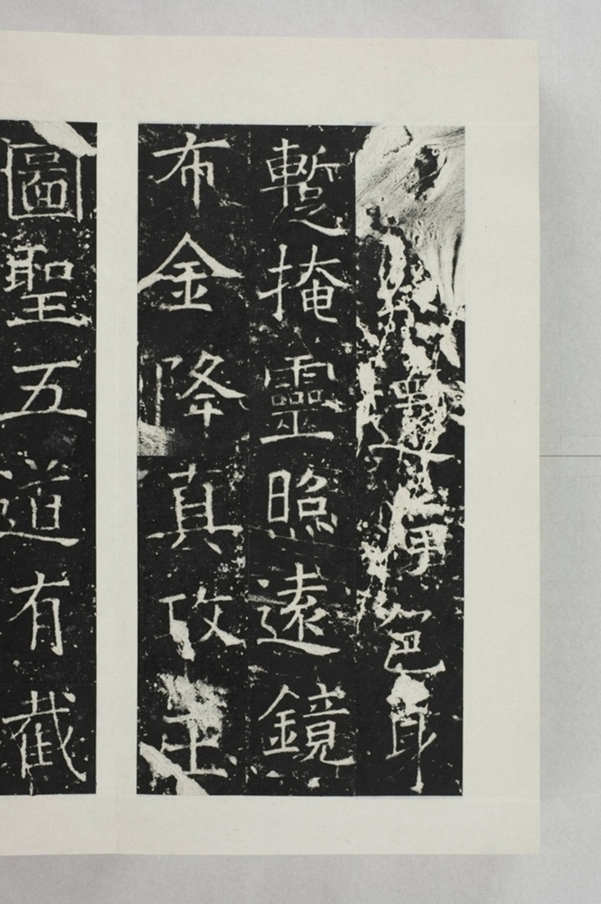 色身
蹔掩靈照遠鏡
布金降真攻玉
圖聖五道有截